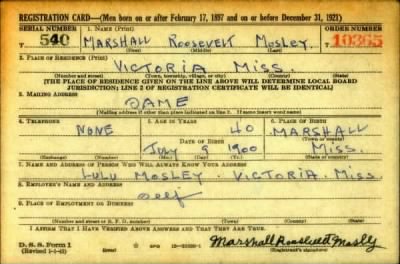 REGISTRATION CARD—(Men born on or after February 17, 1897 and on or before December 31, 1921)
SERIAL NUMBER 1. NAME (Print) ORDER NUMBER
T 540 MARSHALL ROOSEVELT MOSLEY T 10365
(First) (Middle) (Last)
2. PLACE OF RESIDENCE (Print)
VICTORIA MISS.
(Number and street) (Town, township, village, or city) (County) (State)
[THE PLACE OF RESIDENCE GIVEN ON THE LINE ABOVE WILL DETERMINE LOCAL BOARD
JURISDICTION; LINE 2 OF REGISTRATION CERTIFICATE WILL BE IDENTICAL]
3. MAILING ADDRESS
SAME
[Mailing address if other than place indicated on line 2. If same insert word same]
4. TELEPHONE 5. AGE IN YEARS 6. PLACE OF BIRTH
NONE 40 MARSHALL
DATE OF BIRTH (Town or county)
JULY 9 1900 MISS.
(Exchange) (Number) (Mo.) (Day) (Yr.) (State or country)
7. NAME AND ADDRESS OF PERSON WHO WILL ALWAYS KNOW YOUR ADDRESS
LULU MOSLEY. VICTORIA. MISS
8. EMPLOYER'S NAME AND ADDRESS
Self
9. PLACE OF EMPLOYMENT OR BUSINESS
(Number and street or R. F. D. number) (Town) (County) (State)
I AFFIRM THAT I HAVE VERIFIED ABOVE ANSWERS AND THAT THEY ARE TRUE.
D. S. S. Form 1
(Revised 1-1-42) GPO Marshall Roosevelt Mosly
(Registrant's signature)